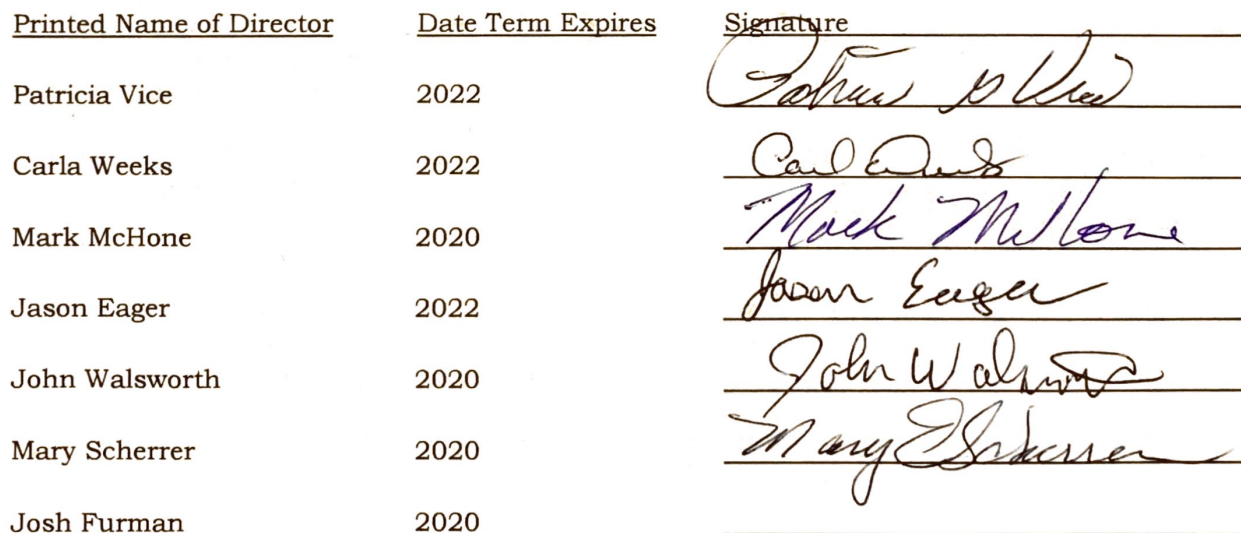 Printed Name of Director Date Term Expires Signature
Patricia Vice 2022 Patricia G Vice
Carla Weeks 2022 Carla Weeks
Mark McHone 2020 Mark McHone
Jason Eager 2022 Jason Eager
John Walsworth 2020 John Walsworth
Mary Scherrer 2020 Mary E Scherrer
Josh Furman 2020